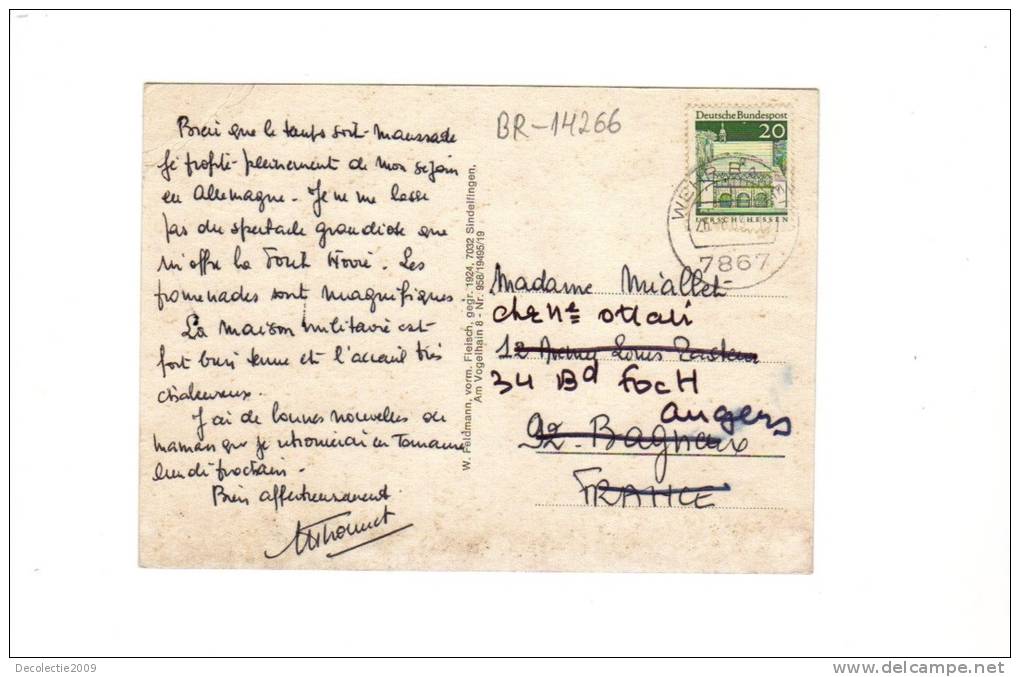 Bien que le temps soit maussade
je profite pleinement de mon séjour
en Allemagne. Je ne me lasse
pas du spectacle grandiose que
m'offre la Forêt Noire. Les
promenades sont magnifiques.
La maison militaire est
fort bien tenue et l'accueil très
chaleureux.
J'ai de bonnes nouvelles de
maman que je retrouverai en Touraine
lundi prochain.
Bien affectueusement.
W. Feldmann, vorm. Fleisch, gegr. 1924, 7032 Sindelfingen,
Am Vogelhain 8 - Nr. 958/19495/19
BR-14266
Deutsche Bundespost
20
LORSCH / HESSEN
7867
Madame Miallet
chez
12 Avenue Louis Pasteur
34 Bd FOCH
angers
92 - Bagneux
FRANCE
Decolectie2009
delcampe.net